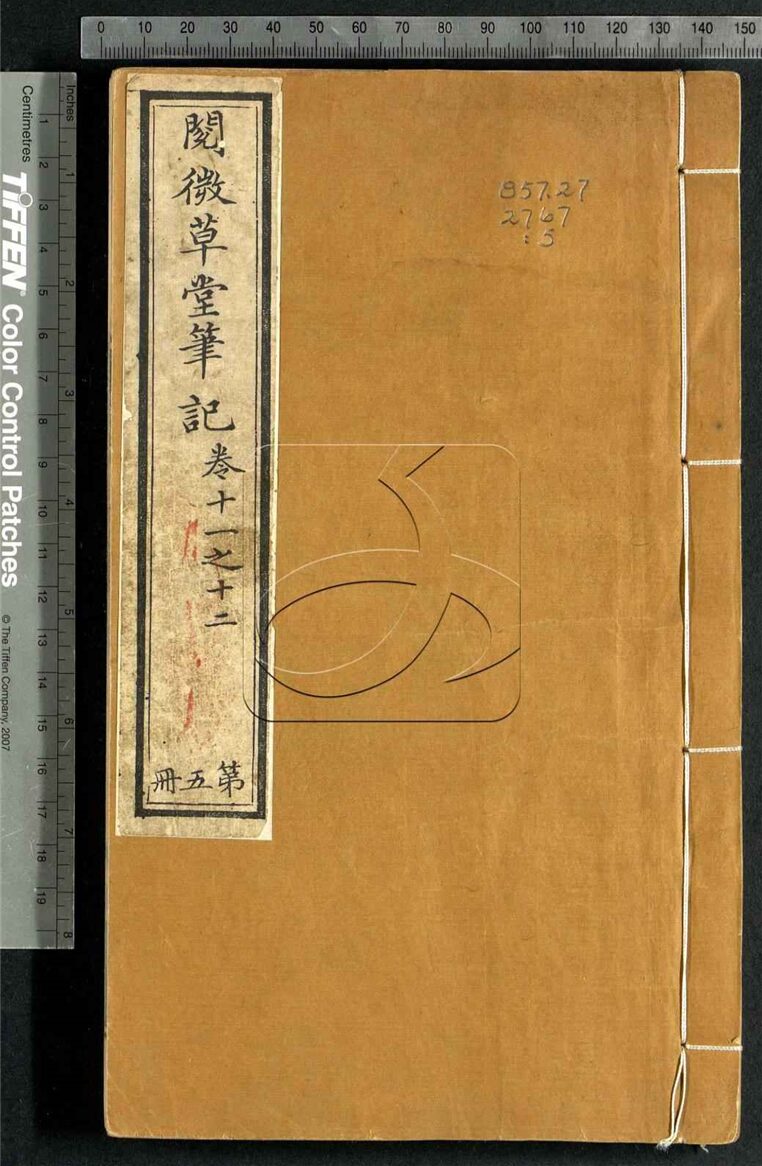 0 10 20 30 40 50 60 70 80 90 100 110 120 130 140 150
閱微草堂筆記
卷十一之十二
第五冊
857.27
2767
:5
Inches
1 2 3 4 5 6 7 8
Centimetres
1 2 3 4 5 6 7 8 9 10 11 12 13 14 15 16 17 18 19
TIFFEN® Color Control Patches
© The Tiffen Company, 2007